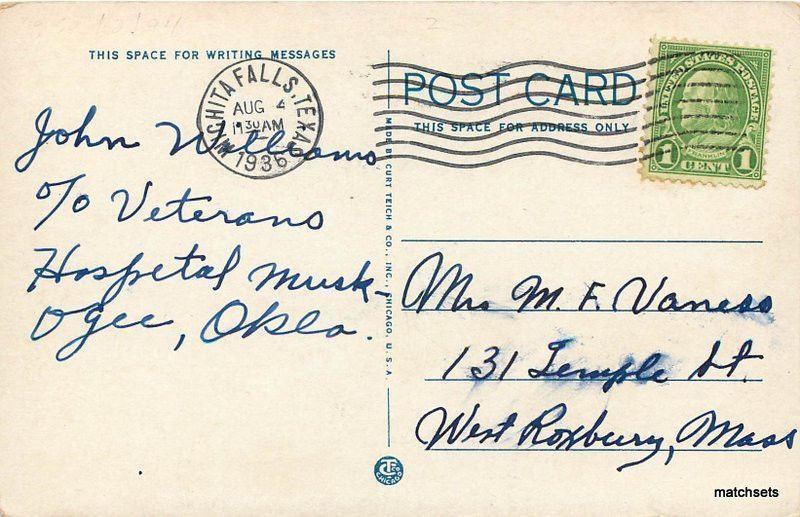 THIS SPACE FOR WRITING MESSAGES
John Williams
c/o Veterans
Hospetal Musk-
ogee, Okla.
WICHITA FALLS, TEXAS
AUG 4
11 30 AM
1936
POST CARD
THIS SPACE FOR ADDRESS ONLY
UNITED STATES POSTAGE
FRANKLIN
1 CENT 1
MADE BY CURT TEICH & CO., INC., CHICAGO, U.S.A.
Mrs M. F. Vaness
131 Temple St.
West Roxbury, Mass
CHICAGO
matchsets